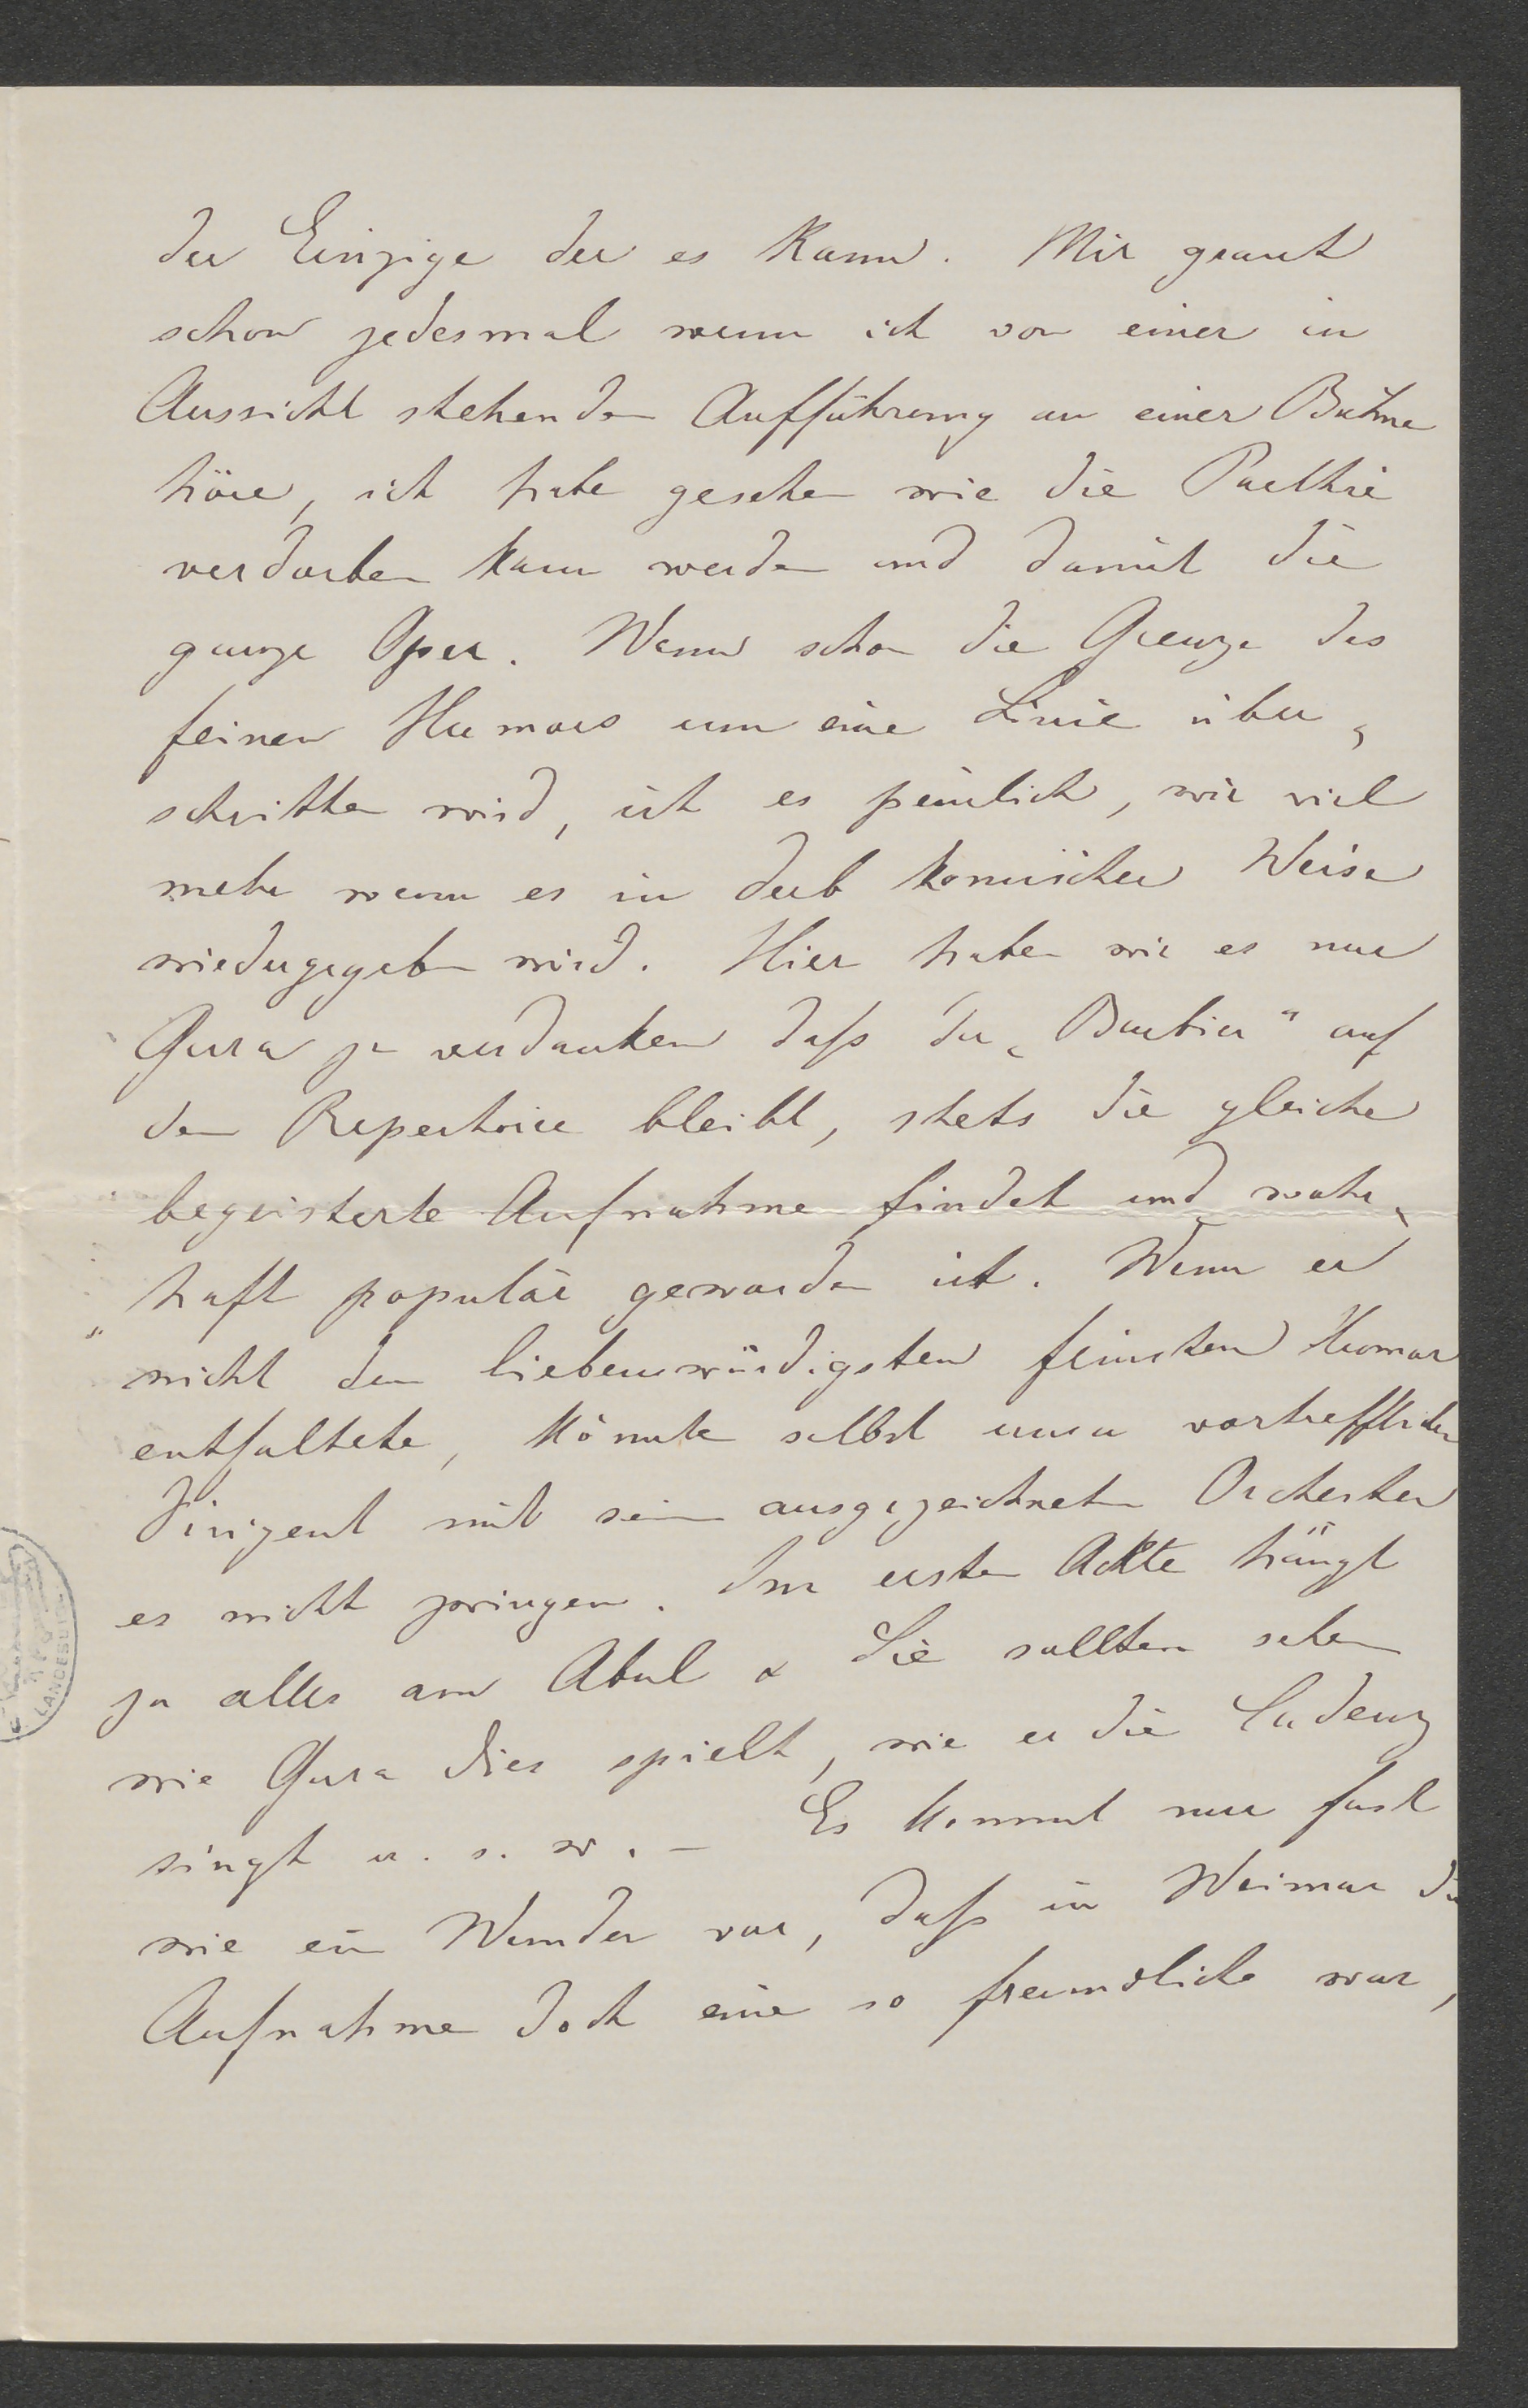 der Einzige der es kann. Mir graut
schon jedesmal wenn ich von einer in
Aussicht stehenden Aufführung an einer Bühne
höre, ich habe gesehen wie die Parthie
verdorben kann werden und damit die
ganze Oper. Wenn schon die Grenze des
feinen Humors um eine Linie über-
schritten wird, ist es peinlich, wie viel
mehr wenn es in derb komischer Weise
wiedergegeben wird. Hier haben wir es nur
Gura zu verdanken daß der „Barbier" auf
dem Repertoire bleibt, stets die gleiche
begeisterte Aufnahme findet und wahr-
haft populär geworden ist. Wenn er
nicht den liebenswürdigsten feinsten Humor
entfaltete, könnte selbst unser vortrefflicher
Dirigent mit sein ausgezeichneten Orchester
es nicht zwingen. Im ersten Akte hängt
ja alles am Abul & Sie sollten sehen
wie Gura dies spielt, wie er die Cadenz
singt u. s. w. – Es kommt mir fast
wie ein Wunder vor, daß in Weimar die
Aufnahme doch eine so freundliche war,